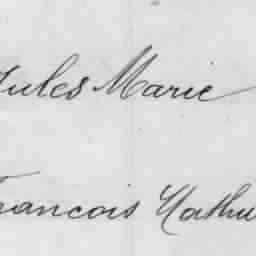 Jules Marie
Francois Mathu